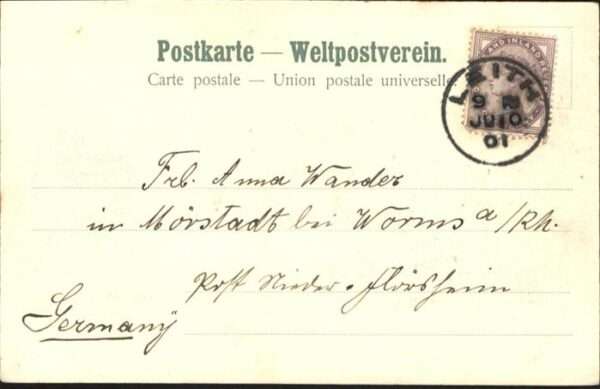 Postkarte — Weltpostverein.
Carte postale — Union postale universelle
LEITH
9
JU 10
01
Frl. Anna Wander
in Mörstadt bei Worms a/Rh.
Post Nieder-Flörsheim
Germany